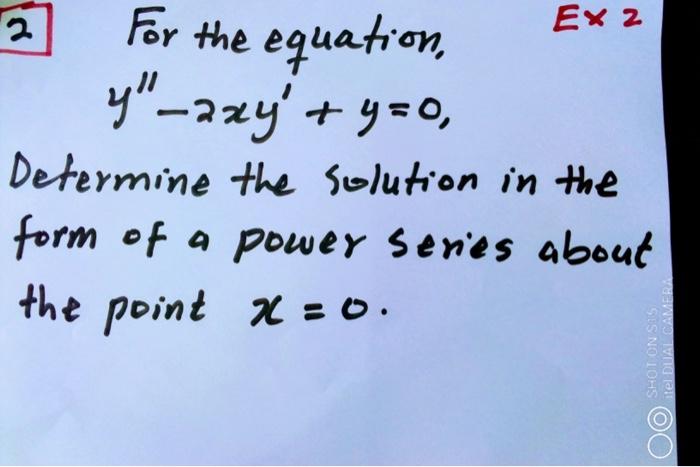 2
For the equation,
Ex 2
y'' - 2xy' + y = 0,
Determine the solution in the
form of a power series about
the point x = 0.
SHOT ON S15
itel DUAL CAMERA